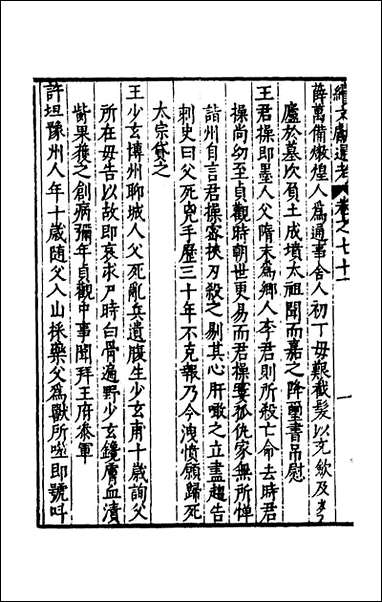 續文獻通考 卷之七十一 一
薛萬備燉煌人爲通事舍人初丁母艱截髮以充斂及
廬於墓次負土成墳太祖聞而嘉之降璽書吊慰
王君操即墨人父隋末爲鄉人李君則所殺亡命去時君
操尚幼至貞觀時朝世更易而君操窶孤仇家無所憚
詣州自言君操密挾刃殺之剔其心肝噉之立盡趨告
刺史曰父死兇手歷三十年不克報乃今洩憤願歸死
太宗貸之
王少玄博州聊城人父死亂兵遺腹生少玄甫十歲詢父
所在母告以故即哀求尸時白骨遍野少玄鑱膚血漬
胔果獲之創病彌年貞觀中事聞拜王府叅軍
許坦豫州人年十歲隨父入山採藥父爲獸所噬即號呌